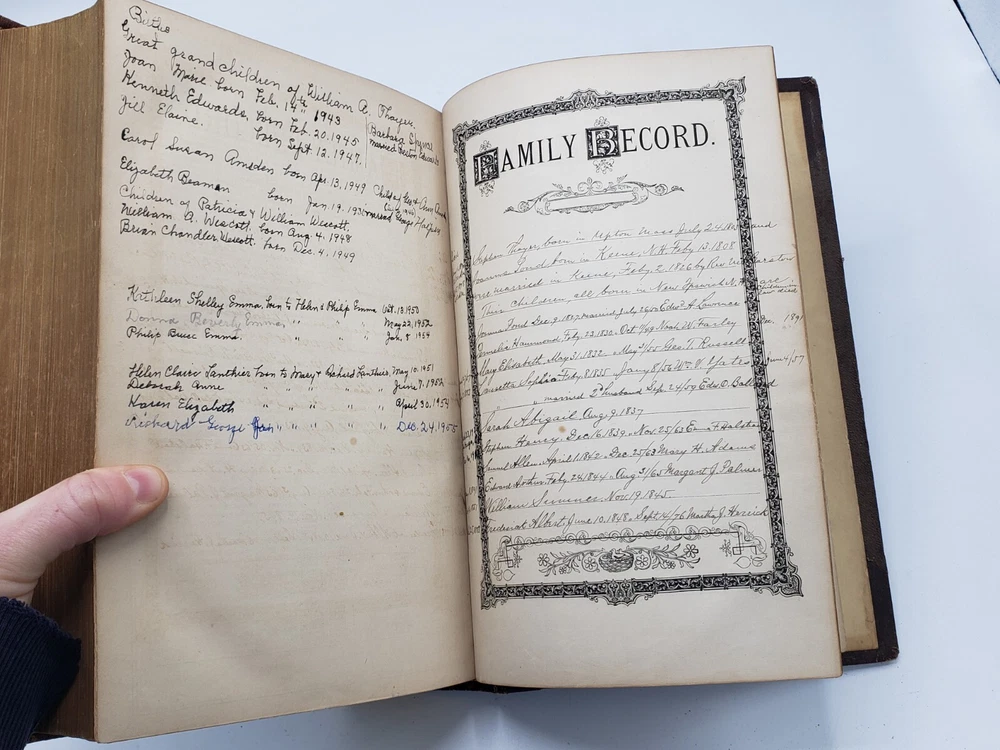 Births
Great grandchildren of William A. Thayer.
Joan Marie born Feb. 14th 1943
Kenneth Edwards, born Feb. 20. 1945
Jill Elaine. born Sept. 12. 1947.
Barbara
married
Carol Susan Amsden born Apr. 13, 1949 Child of
Elizabeth Beaman born Jan. 19. married George
Children of Patricia & William Wescott.
William A. Wescott. born Aug 4. 1948
Brian Chandler Wescott. born Dec. 4. 1949
Kathleen Shelley Emma born to Helen & Philip Emma Oct. 13. 1950
Donna Beverly Emma " " " May 22, 1952
Philip Bruce Emma. " " " Jan. 4 1954
Helen Claire Lanthier born to Mary & Richard Lanthier, May 10. 1951
Deborah Anne " " " " June 7. 1952
Karen Elizabeth " " " " April 30. 1954
Richard George " " " " Dec. 24, 1955
FAMILY RECORD.
Thayer, born in Upton Mass July 24 and
Joanna Fond born in Keene, N.H. Feby. 13. 1808
were married in Keene, Feby. 2. 1826 by Rev
Their children, all born in New Ipswich N.H. are
Joanna Fond Dec. 9. 1827 married July Edwd. A. Lawrence
Hammond, Feby. 22. 1830. Oct Farley Dec. 1891
Mary Elizabeth, May 31. 1832. " May 3/55 Geo. T. Russell
Sophia Feby. 8. 1835 Jany 8/56 Yates June 4/57
" married 2d husband Sept. 24/59 Edw. O.
Sarah Abigail Aug 9. 1837
Stephen Henry, Dec. 16. 1839. Nov. 25/63 F. Halstead
Samuel Allen, April 1. 1842. Dec. 25/63 Mary H. Adams
Edward Arthur Feby. 28. 1844. Aug. 3/65 Margaret J. Palmer
William Nov. 19. 1845
Frederick Albert, June 10, 1848. Sept. 14/76 Martha J. Herrick